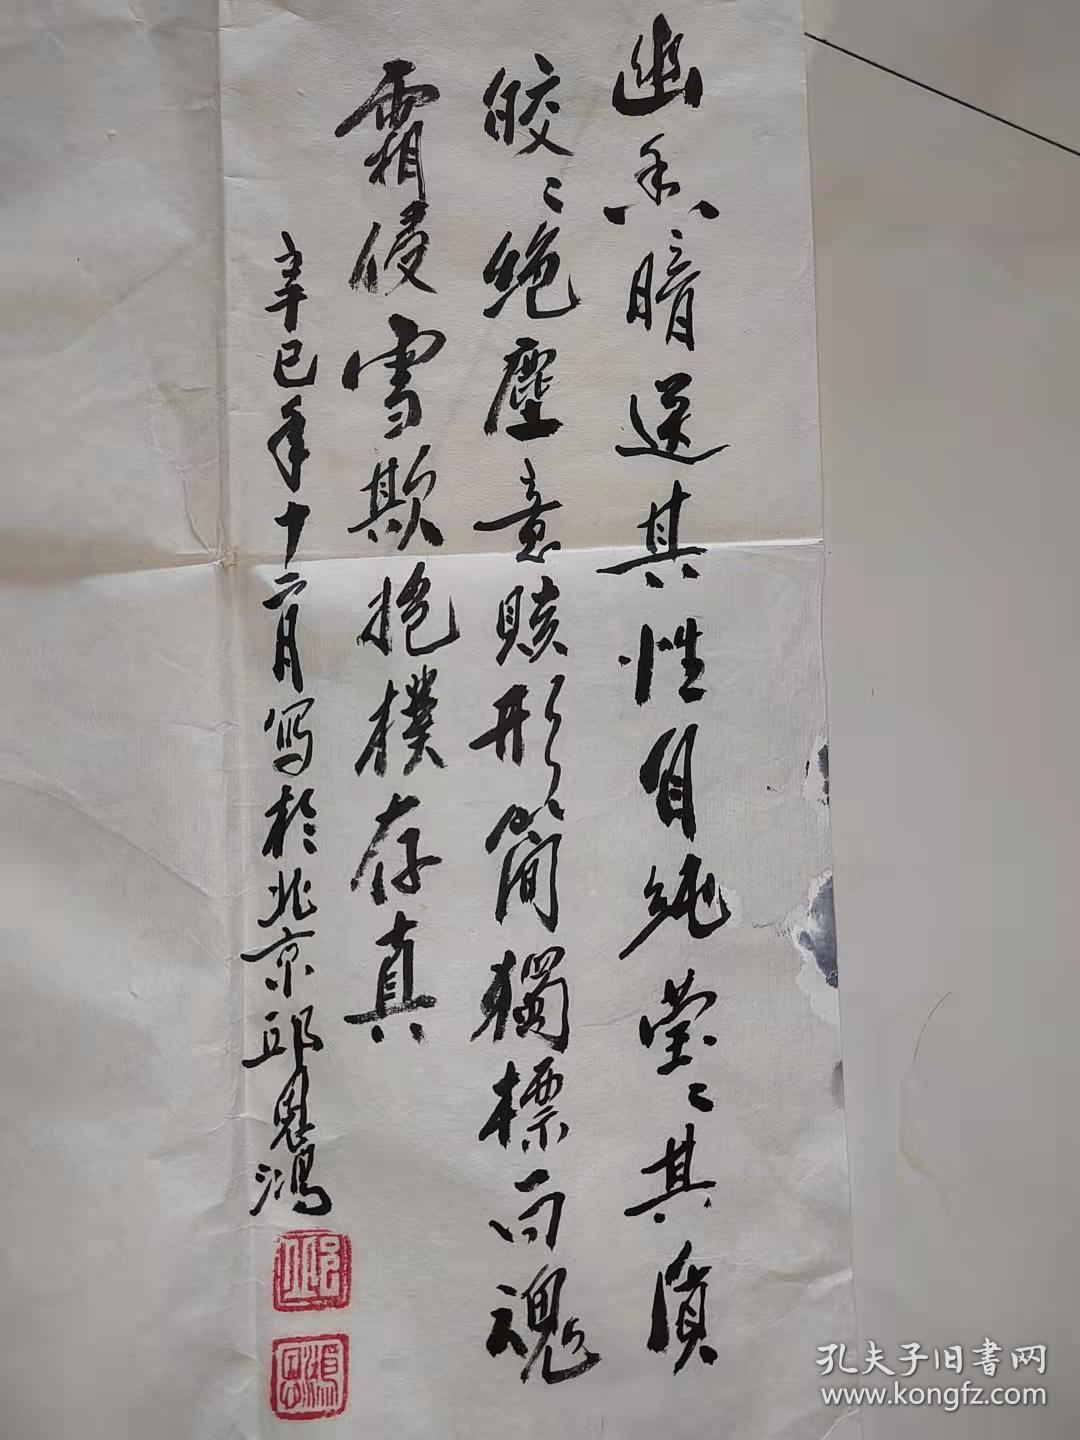 幽香暗送其性自純瑩〻其质
皎〻絶塵意賅形簡獨標白魂
霜侵雪欺抱樸存真
辛巳年十二月写於北京邱恩鴻
邱
恩鴻
孔夫子旧書网
www.kongfz.com